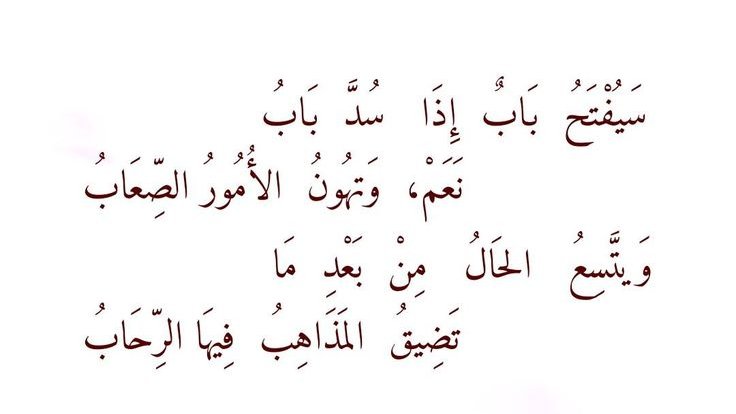 سَيُفْتَحُ بَابٌ إِذَا سُدَّ بَابُ
نَعَمْ، وَتهُونُ الأُمُورُ الصِّعَابُ
وَيتَّسِعُ الحَالُ مِنْ بَعْدِ مَا
تَضِيقُ المَذَاهِبُ فِيهَا الرِّحَابُ